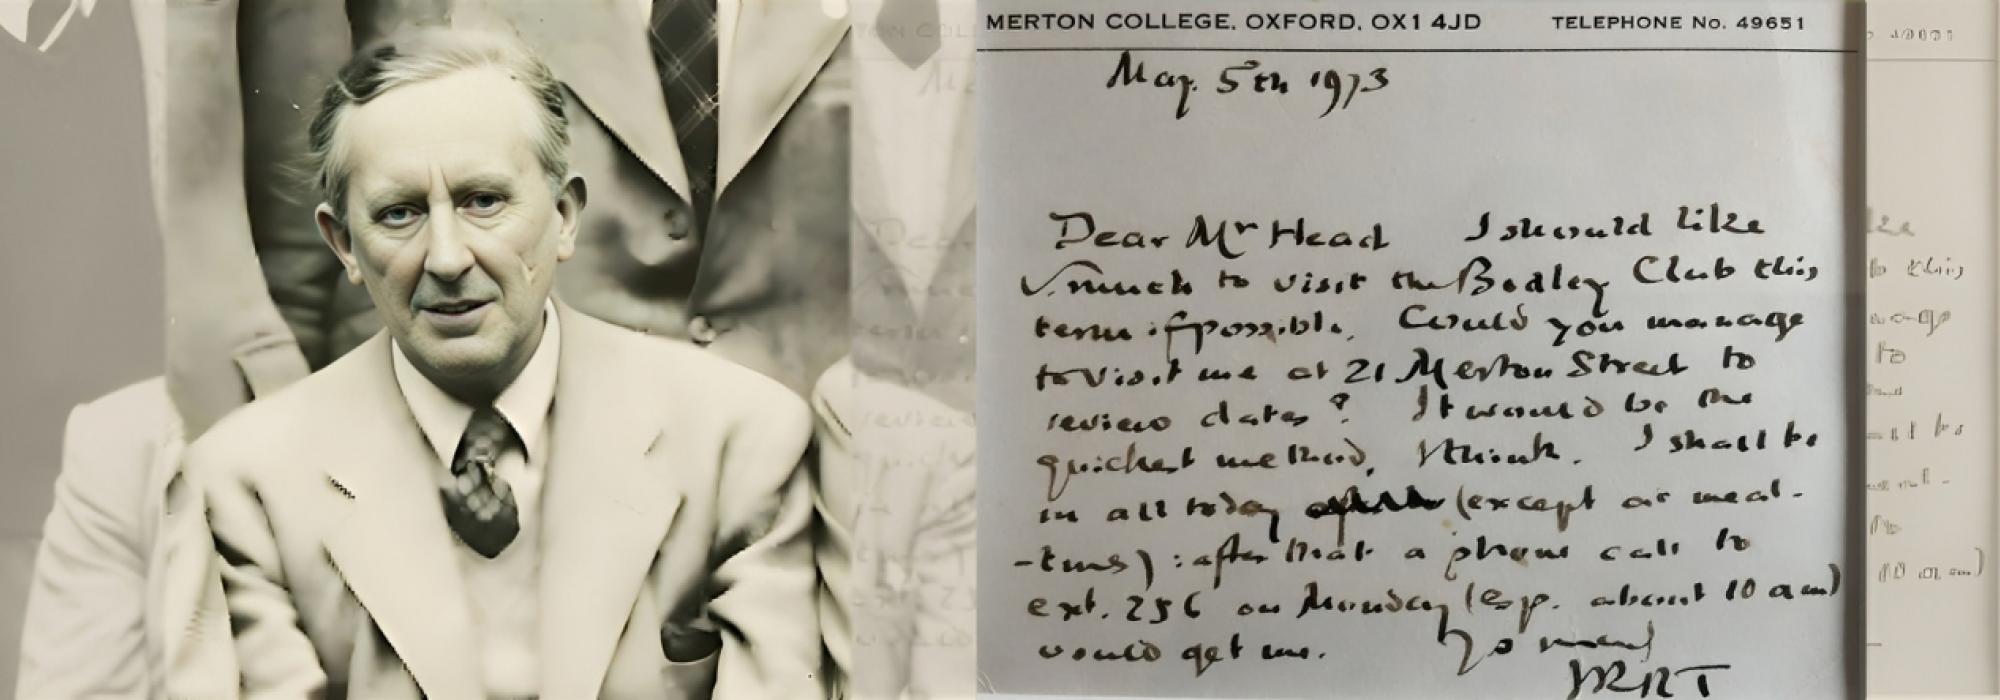 MERTON COLLEGE, OXFORD, OX1 4JD TELEPHONE No. 49651
May. 5th 1973
Dear Mr Head I should like
v. much to visit the Bodley Club this
term if possible. Could you manage
to visit me at 21 Merton Street to
review dates? It would be the
quickest method, I think. I shall be
in all today (except at meal-
-times) : after that a phone call to
ext. 256 on Monday (esp. about 10 am)
would get me. Yo
JRRT